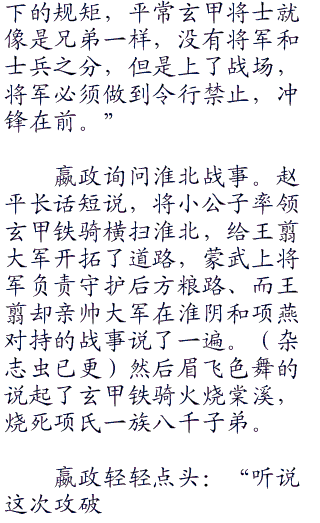 下的规矩，平常玄甲将士就
像是兄弟一样，没有将军和
士兵之分，但是上了战场，
将军必须做到令行禁止，冲
锋在前。”
嬴政询问淮北战事。赵
平长话短说，将小公子率领
玄甲铁骑横扫淮北，给王翦
大军开拓了道路，蒙武上将
军负责守护后方粮路、而王
翦却亲帅大军在淮阴和项燕
对持的战事说了一遍。（杂
志虫已更）然后眉飞色舞的
说起了玄甲铁骑火烧棠溪，
烧死项氏一族八千子弟。
嬴政轻轻点头：“听说
这次攻破